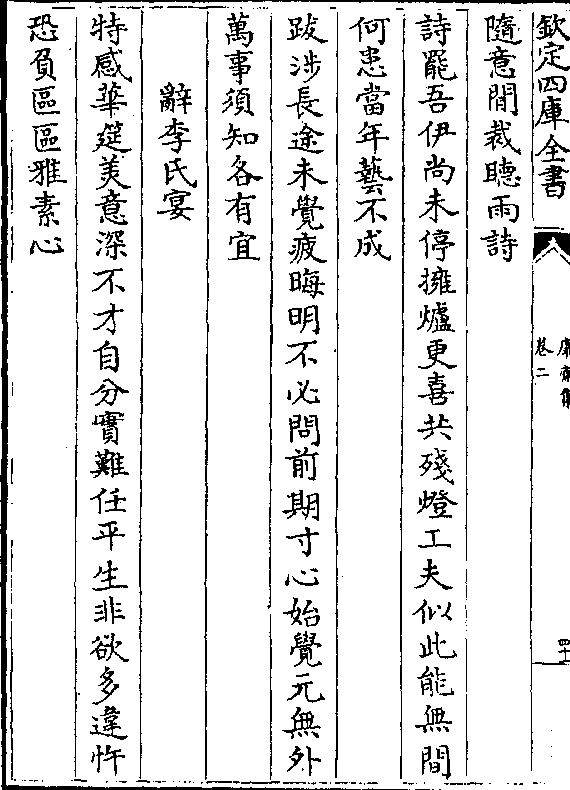 欽定四庫全書
卷二
四十
隨意間裁聽雨詩
詩罷吾伊尚未停擁爐更喜共殘燈工夫似此能無間
何患當年藝不成
跋涉長途未覺疲晦明不必問前期寸心始覺元無外
萬事須知各有宜
辭李氏宴
特感華筵美意深不才自分實難任平生非欲多違忤
恐負區區雅素心